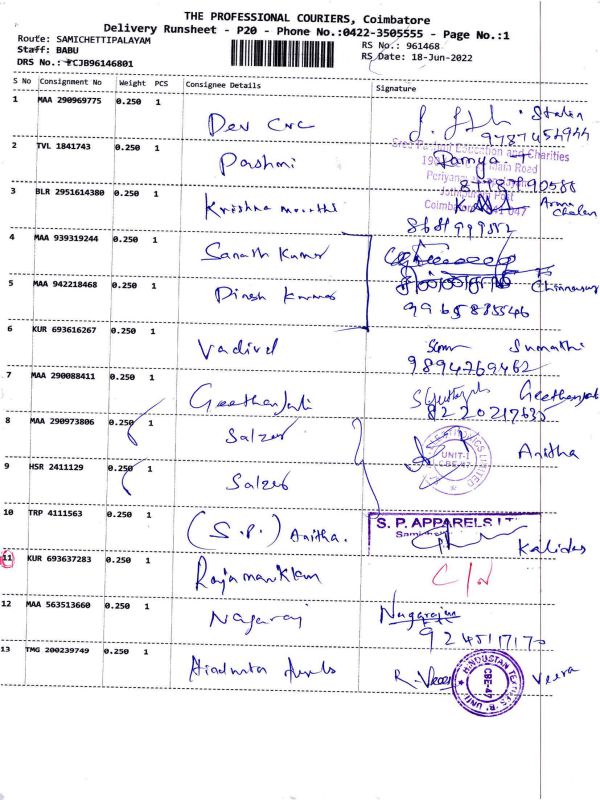 THE PROFESSIONAL COURIERS, Coimbatore
Delivery Runsheet - P20 - Phone No.:0422-3505555 - Page No.:1
Route: SAMICHETTIPALAYAM
Staff: BABU
DRS No.: CJB96146801
RS No.: 961468
RS Date: 18-Jun-2022
S No Consignment No Weight PCS Consignee Details Signature
1 MAA 290969775 0.250 1 Dev CNC Stalin
9787454944
2 TVL 1841743 0.250 1 Pashmi Ramya
Education and Charities
Main Road
3 BLR 2951614380 0.250 1 Krishna moorthi
Coimbatore 641 047
4 MAA 939319244 0.250 1 Sanath Kumar
5 MAA 942218468 0.250 1 Dinesh Kumar
9965885546
6 KUR 693616267 0.250 1 Vadivel Sumathi
9894769462
7 MAA 290088411 0.250 1 Geethanjali Geethanjali
8220217635
8 MAA 290973806 0.250 1 Salzer Anitha
UNIT-I
CBE-47
9 HSR 2411129 0.250 1 Salzer
10 TRP 4111563 0.250 1 (S.P.) Anitha. S. P. APPARELS LT
Kalidas
11 KUR 693637283 0.250 1 Rajamanikkam C/N
12 MAA 563513660 0.250 1 Nagaraj Nagarajan
9245117170
13 TMG 200239749 0.250 1 R. Veera Veera
HINDUSTAN TEXTILES 'B' UNIT
CBE-47